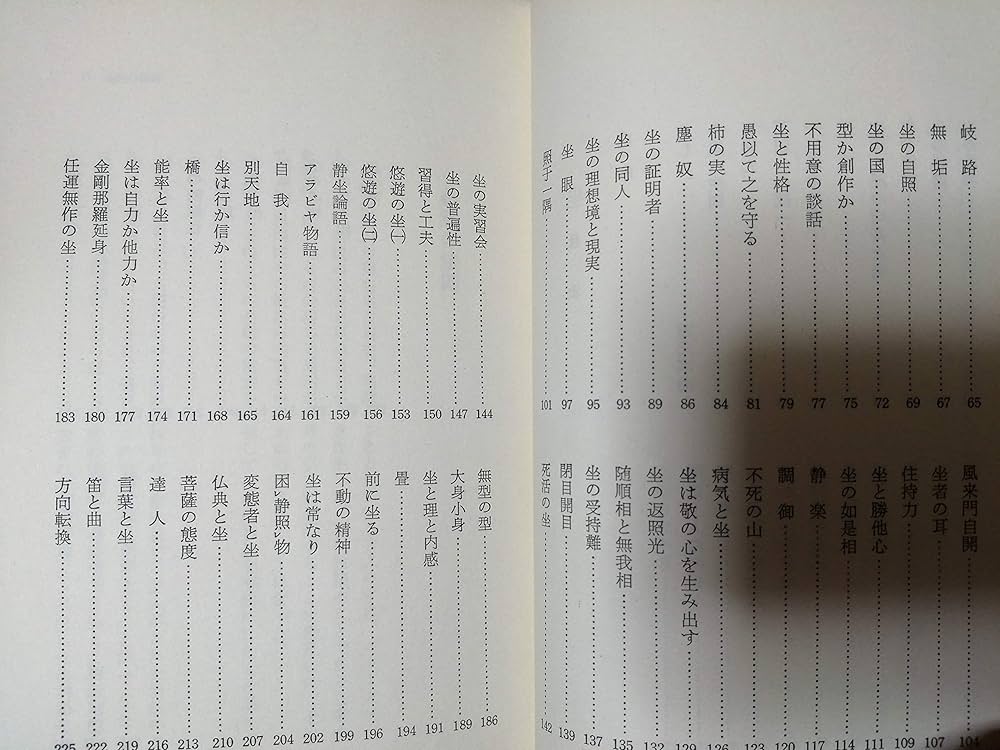 岐路……65
無垢……67
坐の自照……69
坐の国……72
型か創作か……75
不用意の談話……77
坐と性格……79
愚以て之を守る……81
柿の実……84
塵奴……86
坐の証明者……89
坐の同人……93
坐の理想境と現実……95
坐眼……97
照于一隅……101
風来門自開……104
坐者の耳……107
住持力……109
坐と勝他心……111
坐の如是相……114
静楽……117
調御……120
不死の山……123
病気と坐……126
坐は敬の心を生み出す……129
坐の返照光……132
随順相と無我相……135
坐の受持難……137
閉目開目……139
死活の坐……142
坐の実習会……144
坐の普遍性……147
習得と工夫……150
悠遊の坐㈠……153
悠遊の坐㈡……156
静坐論語……159
アラビヤ物語……161
自我……164
別天地……165
坐は行か信か……168
橋……171
能率と坐……174
坐は自力か他力か……177
金剛那羅延身……180
任運無作の坐……183
無型の型……186
大身小身……189
坐と理と内感……191
畳……194
前に坐る……196
不動の精神……199
坐は常なり……202
困レ静照レ物……204
変態者と坐……207
仏典と坐……210
菩薩の態度……213
達人……216
言葉と坐……219
笛と曲……222
方向転換……225